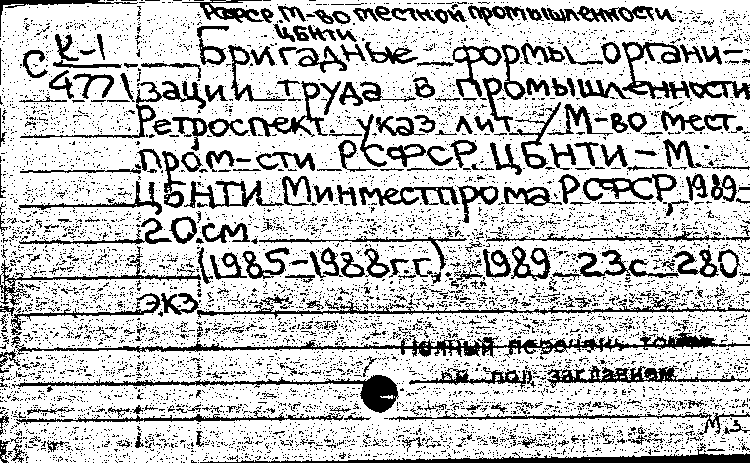 РСФСР. М-во местной промышленности.
ЦБНТИ.
С К-1
4771
Бригадные формы органи-
зации труда в промышленности
Ретроспект. указ. лит. / М-во мест.
пром-сти РСФСР. ЦБНТИ - М.:
ЦБНТИ Минместпрома РСФСР, 1989-
20 см.
(1985-1988 г.г.). 1989 23 с. 280
экз.
Полный перечень томов
см. под заглавием
М.З.